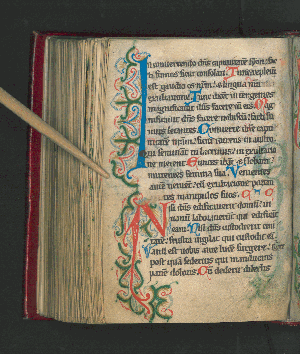 In convertendo dñs captiuitatẽ syon: fac
ti sumus sicut consolati. Tunc repletũ
est gaudio os nrm: ⁊ lingua nrã
exultatione. Tunc dicent int̃ gentes
magnificauit dñs facere cũ eis. Mag
nificauit dñs facere nobiscũ: facti su
mus letantes. Conuerte dñe capti
uitatẽ nrãm: sicut torrens in austro.
Qui seminant in lacrimis: in exultatio
ne metent. Euntes ibãt ⁊ flebant:
mittentes semina sua. Venientes
autẽ uenient cũ exultatione: portan
tes manipulos suos.
Nisi dñs edificauerit domũ: in
uanũ laborauerunt qui edificant
eam. Nisi dñs custodierit ciui
tatẽ: frustra uigilat qui custodit eã.
Vanũ est uobis ante lucẽ surgere: surgite
post quã sederitis qui manducatis
panẽ doloris. Cũ dederit dilectis